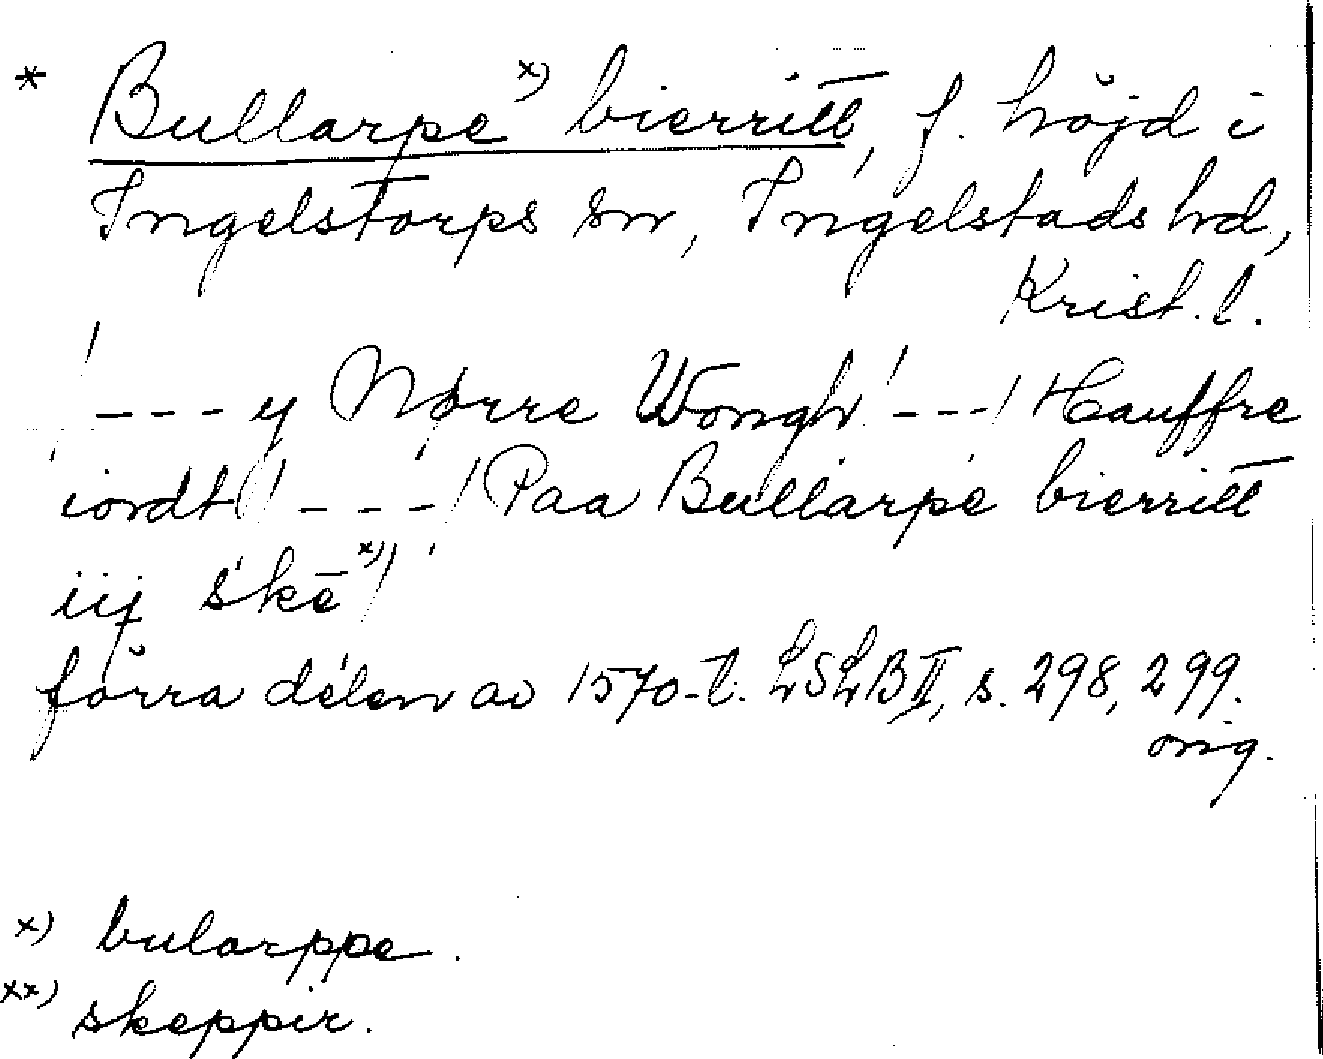 * Bullarpe x) bierritt, f. höjd i
Ingelstorps sn, Ingelstads hd,
Krist. l.
/---y Nørre Wongh/---/Hauffre
iordt/---/Paa Bullarpe bierritt
iij skē x)/
förra delen av 1570-t. LSLB II, s. 298, 299.
orig.
x) bularppe.
xx) skeppir.